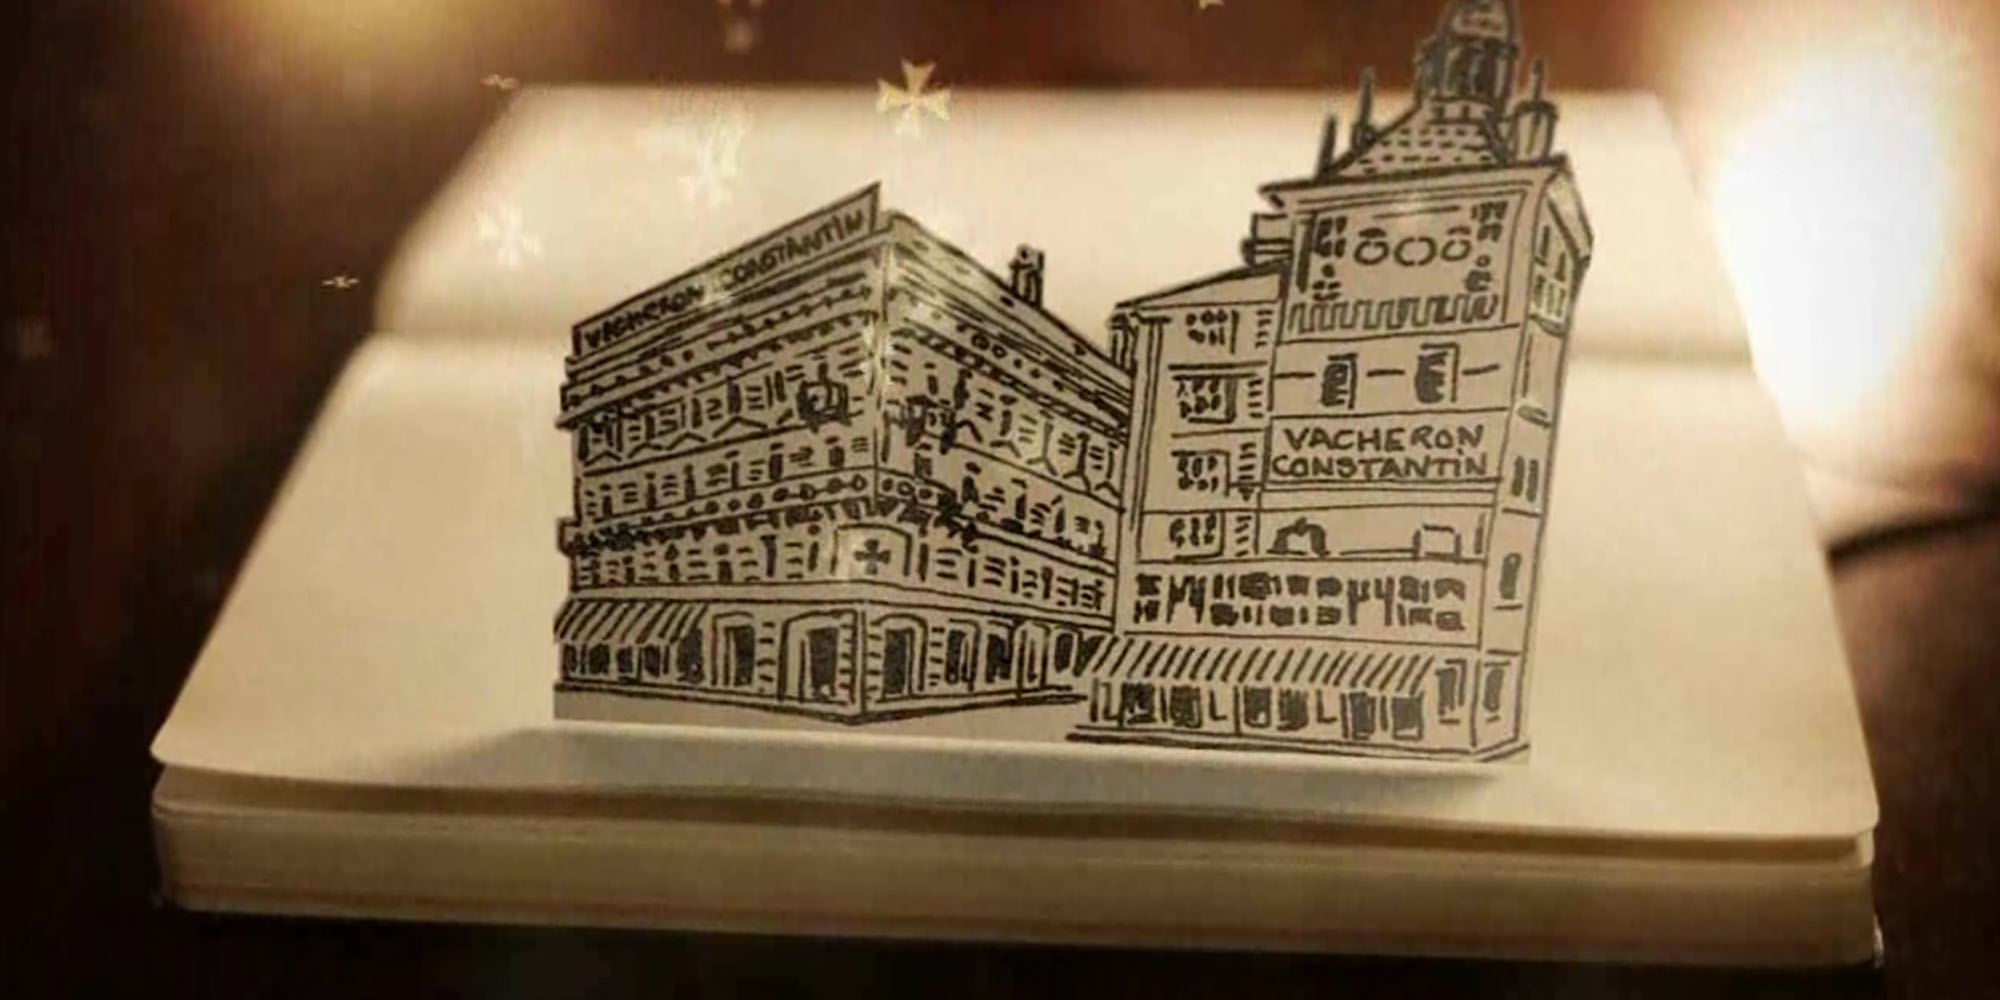 VACHERON CONSTANTIN
VACHERON
CONSTANTIN